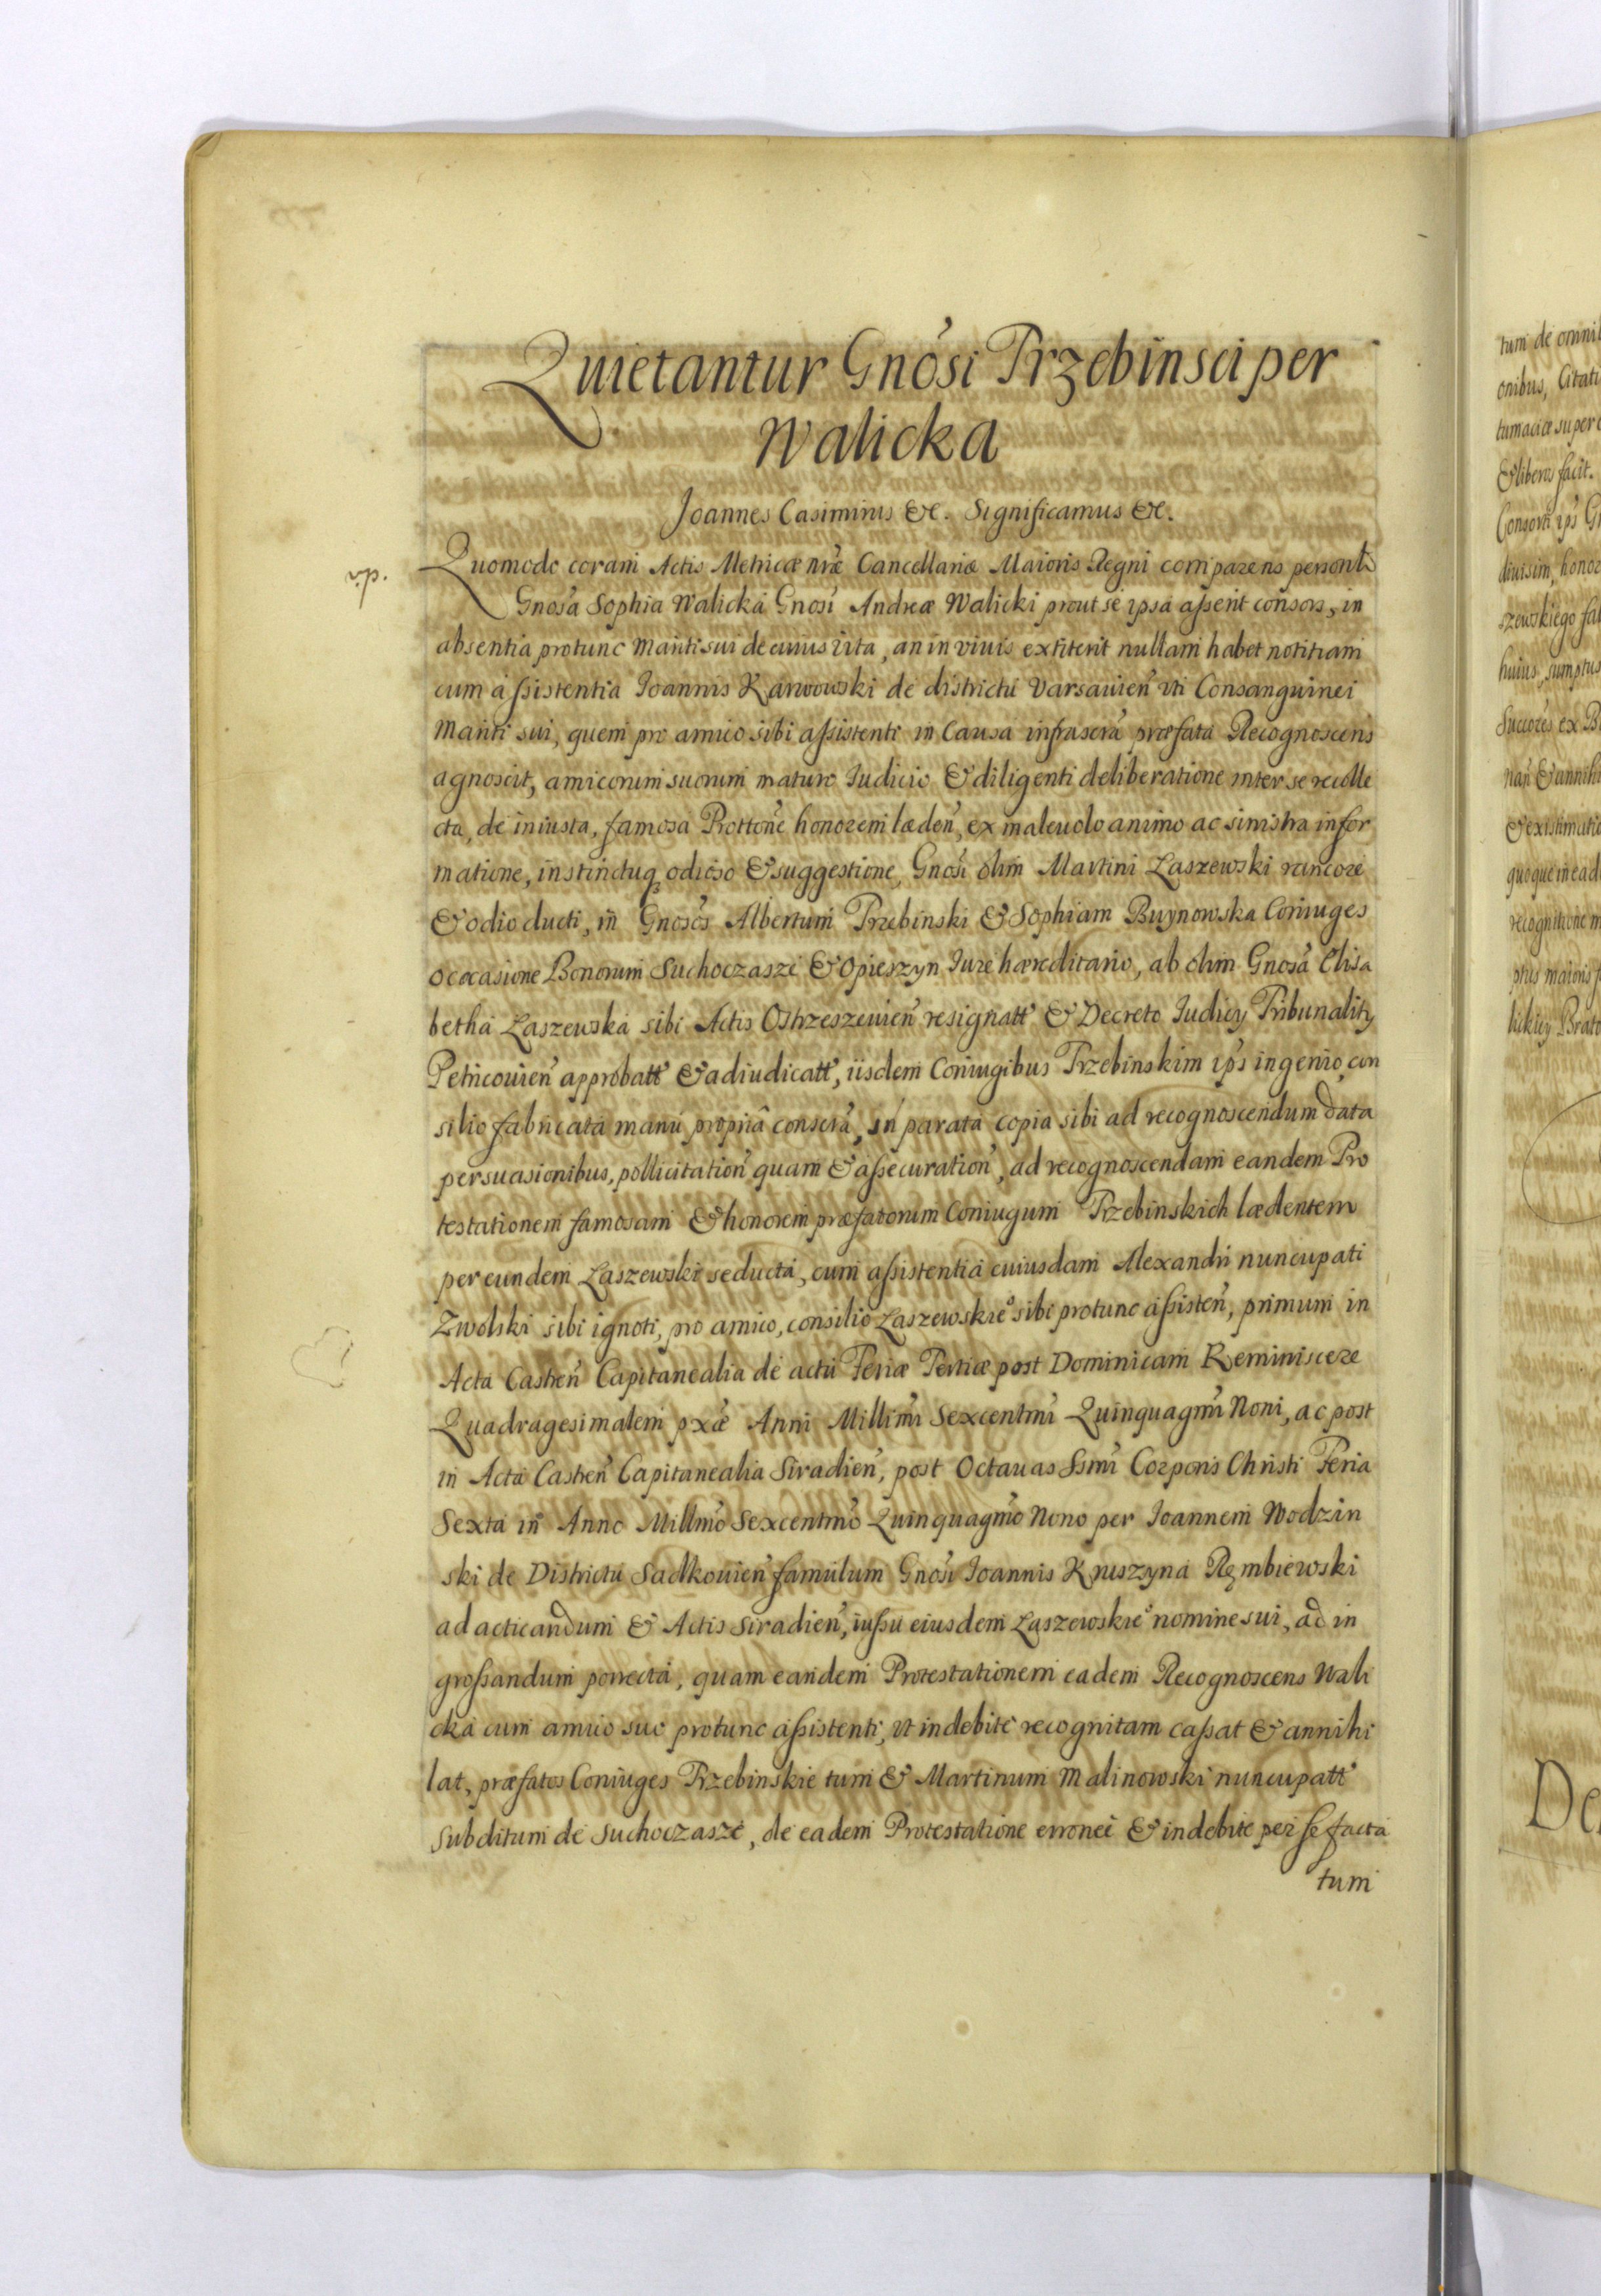 Quietantur Gnosi Przebinsci per
Walicka
Joannes Casimirus &c. Significamus &c.
v.p.
Quomodo coram Actis Metricæ nræ Cancellariæ Maioris Regni comparens personlr
Gnosa Sophia Walicka Gnosi Andreæ Walicki prout se ipsa asserit consors, in
absentia protunc Mariti sui de cuius vita, an in viuis extiterit nullam habet notitiam
cum assistentia Joannis Karwowski de districtu Varsauien uti Consanguinei
Mariti sui, quem pro amico sibi assistenti in Causa infrascra præfata Recognoscens
agnoscit, amicorum suorum maturo Judicio & diligenti deliberatione inter se recolle
cta, de iniusta, famosa Prottone honorem læden, ex maleuolo animo ac sinistra infor
matione, instinctuq odioso & suggestione, Gnosi olim Martini Laszewski rancore
& odio ducti, in Gnosos Albertum Przebinski & Sophiam Buynowska Coniuges
occasione Bonorum Suchoczasze & Opieszyn Jure hæreditario, ab olim Gnosa Elisa
betha Laszewska sibi Actis Ostrzeszouien resignatt & Decreto Judicy Tribunality
Petricouien approbatt & adiudicatt, iisdem Coniugibus Przebinskim ips ingenio, con
silio fabricata manu propria conscra, in parata copia sibi ad recognoscendum data
persuasionibus, pollicitation quam & assecuration, ad recognoscendam eandem Pro
testationem famosam & honorem præfatorum Coniugum Przebinskich lædentem
per eundem Laszewski seducta, cum assistentia cuiusdam Alexandri nuncupati
Zwolski sibi ignoti, pro amico, consilio Laszewskieo sibi protunc assisten, primum in
Acta Castren Capitanealia de actu Feriæ Tertiæ post Dominicam Reminiscere
Quadragesimalem pxæ Anni Millimi Sexcentmi Quinquagmi Noni, ac post
in Acta Castren Capitanealia Siradien, post Octauas Ssmi Corporis Christi Feria
Sexta in Anno Millmo Sexcentmo Quinquagmo Nono per Joannem Wodzin
ski de Districtu Sadkouien famulum Gnosi Joannis Kruszyna Rembiewski
ad acticandum & Actis Siradien, iussu eiusdem Laszewskieo nomine sui, ad in
grossandum porrecta, quam eandem Protestationem eadem Recognoscens Wali
cka cum amico suo protunc assistenti, ut indebite recognitam cassat & annihi
lat, præfatos Coniuges Przebinskie tum & Martinum Malinowski nuncupatt
subditum de Suchoczasze, de eadem Protestatione erronee & indebite per se facta
tum
tum de omnib
onibus, Citati
tumaciæ super
& liberos facit.
Consorti ips G
diuisim, honor
szewskiego fal
huius, sumptus
Succores ex B
nan & annihi
& existimatio
quoque in ead
recognitione m
ptus maioris
lickiey Brato
De